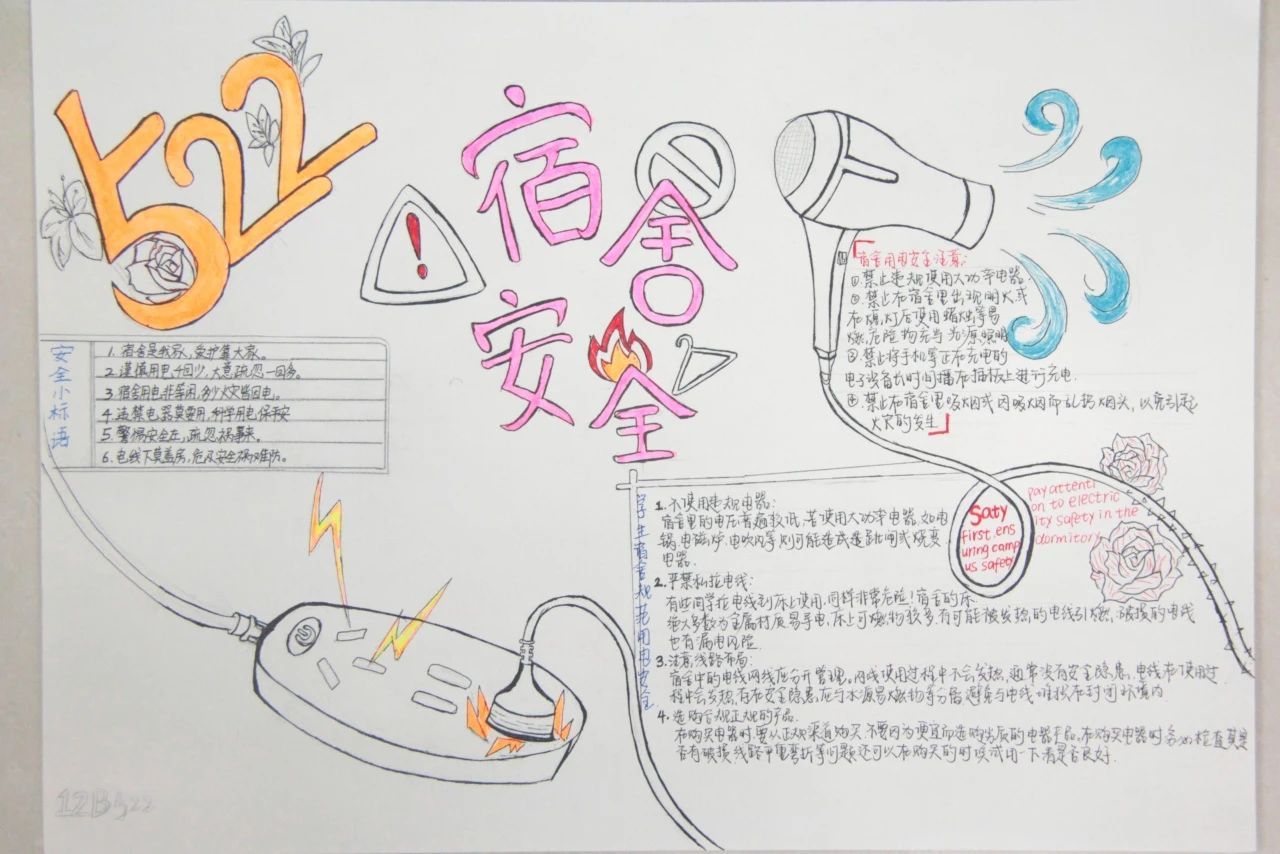 522
宿舍
安全
安全小标语
1. 宿舍是我家,爱护靠大家。
2. 谨慎用电4回少,大意疏忽一回多。
3. 宿舍用电非等闲,多少火灾皆因电。
4. 违禁电器莫要用,科学用电保平安
5. 警惕安全在,疏忽祸事来。
6. 电线下莫盖房,危及安全祸难防。
「宿舍用电安全注意:
①.禁止违规使用大功率电器.
②.禁止在宿舍里出现明火或
在熄灯后使用蜡烛等易
燃,危险物充当光源照明
③.禁止将手机等正在充电的
电子设备长时间插在插板上进行充电.
④.禁止在宿舍里吸烟或因吸烟而乱扔烟头,以免引起
火灾的发生」
Saty
first.ens
uring camp
us safety
pay attenti
on to electric
ity safety in the
dormitory
学生宿舍规范用电安全
1. 不使用违规电器:
宿舍里的电压普遍较低,若使用大功率电器,如电
锅,电磁炉,电吹风等则可能造成跳闸或烧毁
电器.
2. 严禁私拉电线:
有些同学拉电线到床上使用,同样非常危险!宿舍的床
绝大多数为金属材质易导电,床上可燃物较多,有可能被发热的电线引燃,破损的电线
也有漏电风险.
3. 注意线路布局:
宿舍中的电线网线应分开管理。网线使用过程中不会发热,通常没有安全隐患,电线在使用过
程中会发热,存在安全隐患,应与水源易燃物等分离,避免与电线堆积在封闭环境内
4. 选购合规正规的产品.
在购买电器时,要从正规渠道购买,不要因为便宜而选购劣质的电器产品,在购买电器时务必检查其是
否有破损,线路严重弯折等问题,还可以在购买的时候试用一下看是否良好.
12B522